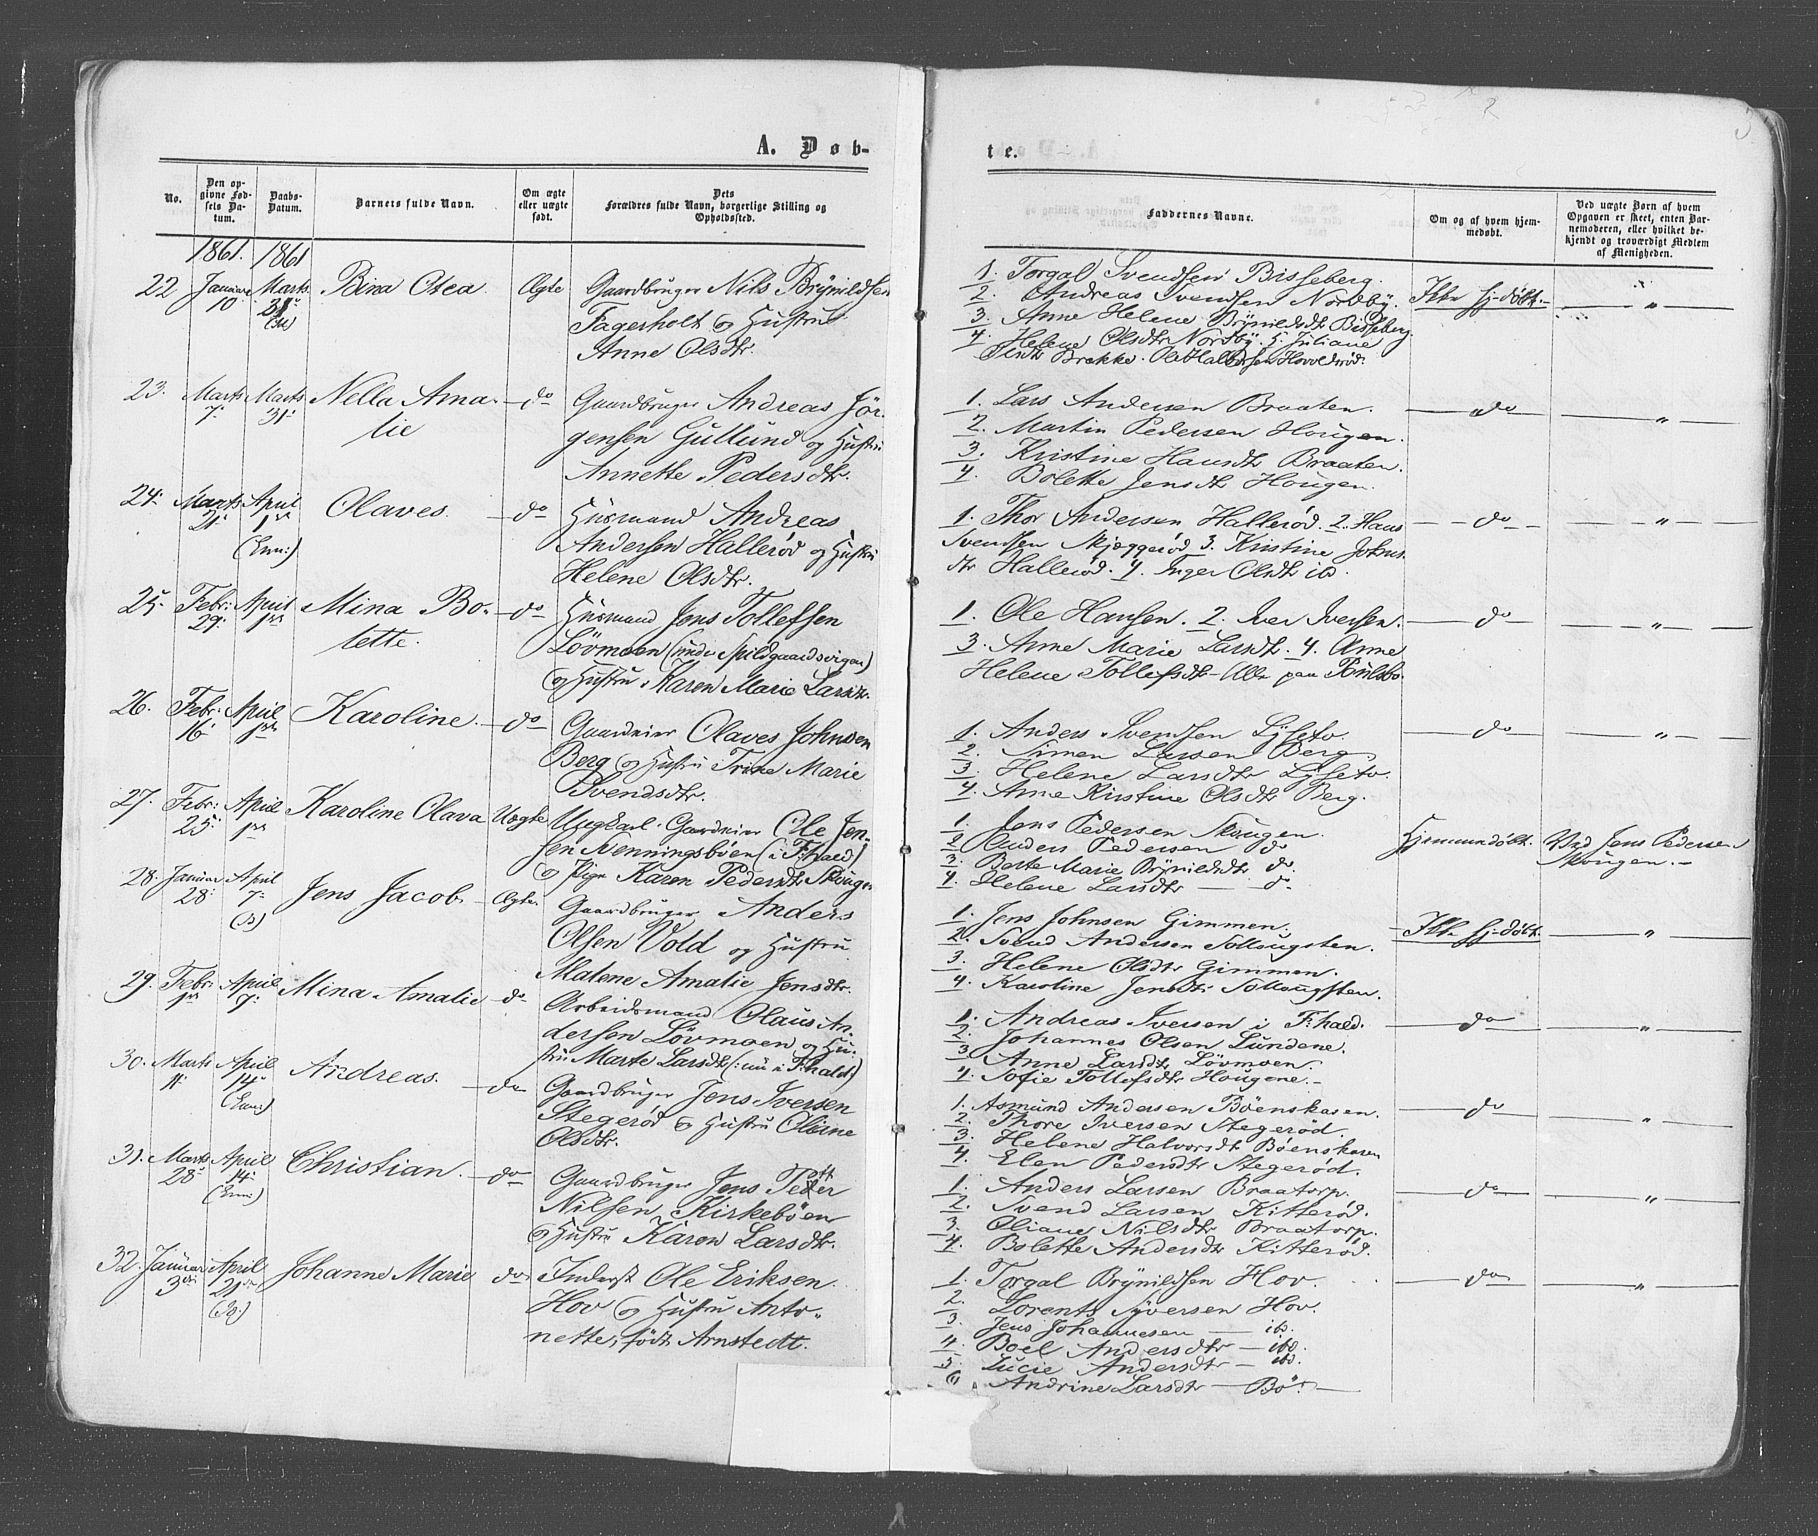 A. Døb-
No.
Den op-
givne Fød-
sels Da-
tum.
Daabs-
Datum.
Barnets fulde Navn.
Om ægte
eller uægte
født.
Dets
Forældres fulde Navn, borgerlige Stilling og
Opholdssted.
1861. 1861
22 Januar 10 Marts 31te Bina Otea. Ægte Gaardbruger Nils Brynildsen
Fagerholt og Hustru
Anne Olsdtr.
23. Marts 7. Marts 31. Nella Ama-
lie do Gaardbruger Andreas Jör-
gensen Gullund og Hustru
Annette Pedersdtr.
24. Marts 21. April 1ste Olaves. do Husmand Andreas
(Enn:) Andersen Hallerød og Hustru
Helene Olsdtr.
25. Febr: 29. April 1ste Mina Bo-
lette. do Husmand Jens Tollefsen
Lövmoen (under Spildgaardsvigen)
og Hustru Karen Marie Larsdtr.
26. Febr: 16. April 1ste Karoline. do Gaardeier Olaves Johnsen
Berg og Hustru Trine Marie
Svendsdtr.
27. Febr: 25. April 1ste Karoline Olava Uægte Ungkarl Gaardeier Ole Jen-
sen Nenningsböen (i F:hald)
og Pige Karen Pedersdtr Skougen
28. Januar 28. April 7. Jens Jacob. Ægte. Gaardbruger Anders
Olsen Vold og Hustru
Malene Amalie Jensdtr.
29. Febr: 1ste April 7. Mina Amalie do Arbeidsmand Olaus An-
dersen Lövmoen og Hu-
stru Marte Larsdtr (: nu i F:hald)
30. Marts 11. April 14. Andreas. do Gaardbruger Jens Iversen
(Enn:) Stegerød og Hustru Olene
Olsdtr.
31. Marts 28. April 14. Christian. do Gaardbruger Jens Peder
(Enn:) Nilsen Kirkebøen
og Hustru Karen Larsdtr.
32. Januar 3die April 21de Johanne Marie do Inderst Ole Eriksen
Hov og Hustru Anto-
nette, født Arnstedt.
te.
Faddernes Navne.
Om og af hvem hjem-
medøbt.
Ved uægte Børn af hvem
Opgaven er skeet, enten Bar-
nemoderen, eller hvilket be-
kjendt og troværdigt Medlem
af Menigheden.
1. Torgal Svendsen Bisseberg. Ikke hj-døbt. "
2. Andreas Svendsen Nordby.
3. Anne Helene Brynildsdtr Bisseberg
4. Helene Olsdtr Nordby. 5. Juliane
Olsdtr Brække. Ole Halvorsen Hovelsrød.
1. Lars Andersen Braaten. do "
2. Martin Pedersen Hougen.
3. Kristine Hansdtr Braaten.
4. Bolette Jensdtr Hougen.
1. Thor Andersen Hallerød. 2. Hans do "
Svendsen Skjæggerød 3. Kristine Johns
dtr Hallerød. 4. Inger Olsdtr ibd.
1. Ole Hansen. 2. Iver Iversen. do "
3. Anne Marie Larsdtr. 4. Anne
Helene Tollefsdtr - Alle paa
1. Anders Svendsen Lyseto. do "
2. Simen Larsen Berg.
3. Helene Larsdtr Lyseto.
4. Anne Kristine Olsdtr Berg.
1. Jens Pedersen Skougen. Hjemmedøbt. Ved Jens Pedersen
2 Anders Pedersen do Skougen.
3. Berte Marie Brynildsdtr do.
4. Helene Larsdtr do.
1. Jens Johnsen Gimmen. Ikke hj-døbt. "
2. Svend Andersen Tollougsten.
3. Helene Olsdtr Gimmen.
4. Karoline Jensdtr Tollougsten.
1. Andreas Iversen i F:hald. do "
2. Johannes Olsen Lundene.
3. Anne Larsdtr Lövmoen.
4. Sofie Tollefsdtr Hougene.
1. Asmund Andersen Böenskasen. do "
2. Thore Iversen Stegerød.
3. Helene Halvorsdtr Böenskasen
4. Elen Pedersdtr Stegerød.
1. Anders Larsen Braatorp. do "
2. Svend Larsen Kitterød.
3. Oliane Nilsdtr Braatorp.
4. Bolette Andersdtr Kitterød.
1. Torgal Brynildsen Hov. do "
2. Lorents Syversen Hov.
3. Jens Johannesen ibd.
4. Boel Andersdtr ibd.
5. Lucie Andersdtr ibd.
6. Andrine Larsdtr Bö.